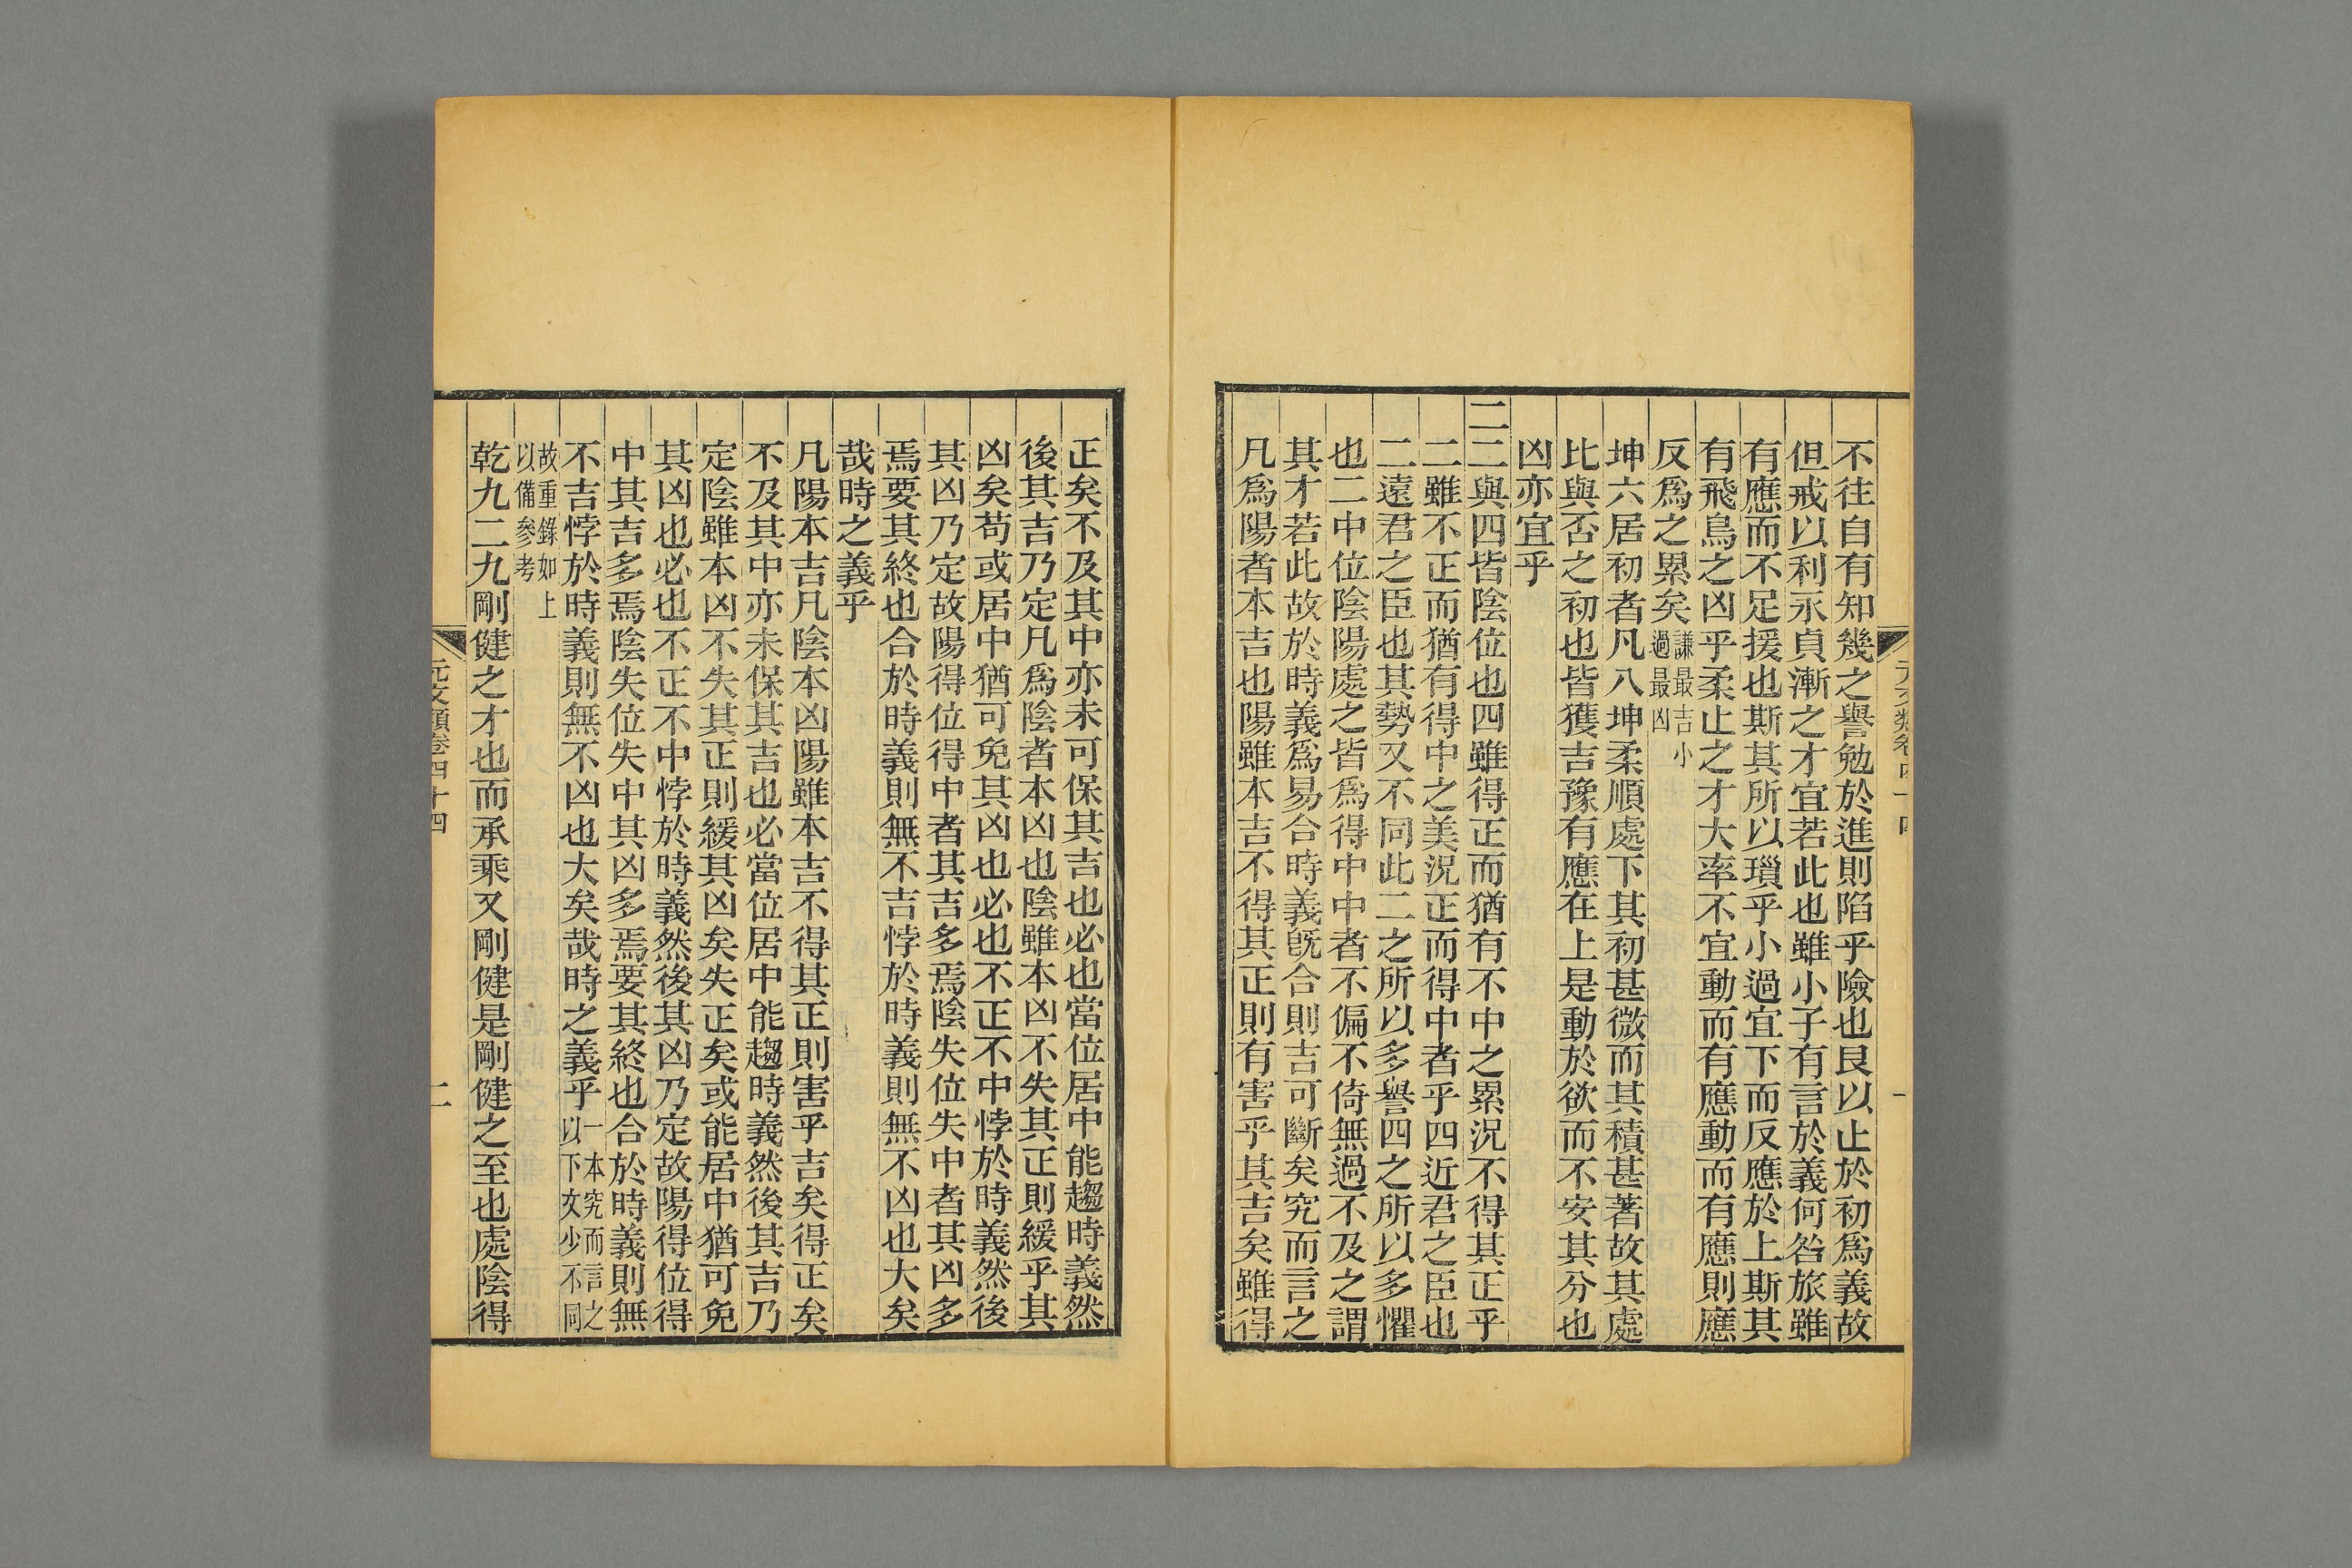 不往自有知幾之譽勉於進則陷乎險也艮以止於初爲義故
但戒以利永貞漸之才宜若此也雖小子有言於義何咎旅雖
有應而不足援也斯其所以瑣乎小過宜下而反應於上斯其
有飛鳥之凶乎柔止之才大率不宜動而有應動而有應則應
反爲之累矣謙最吉小
過最凶
坤六居初者凡八坤柔順處下其初甚微而其積甚著故其處
比與否之初也皆獲吉豫有應在上是動於欲而不安其分也
凶亦宜乎
二二與四皆陰位也四雖得正而猶有不中之累況不得其正乎
二雖不正而猶有得中之美況正而得中者乎四近君之臣也
二遠君之臣也其勢又不同此二之所以多譽四之所以多懼
也二中位陰陽處之皆爲得中中者不偏不倚無過不及之謂
其才若此故於時義爲易合時義旣合則吉可斷矣究而言之
凡爲陽者本吉也陽雖本吉不得其正則有害乎其吉矣雖得
正矣不及其中亦未可保其吉也必也當位居中能趨時義然
後其吉乃定凡爲陰者本凶也陰雖本凶不失其正則緩乎其
凶矣苟或居中猶可免其凶也必也不正不中悖於時義然後
其凶乃定故陽得位得中者其吉多焉陰失位失中者其凶多
焉要其終也合於時義則無不吉悖於時義則無不凶也大矣
哉時之義乎
凡陽本吉凡陰本凶陽雖本吉不得其正則害乎吉矣得正矣
不及其中亦未保其吉也必當位居中能趨時義然後其吉乃
定陰雖本凶不失其正則緩其凶矣失正矣或能居中猶可免
其凶也必也不正不中悖於時義然後其凶乃定故陽得位得
中其吉多焉陰失位失中其凶多焉要其終也合於時義則無
不吉悖於時義則無不凶也大矣哉時之義乎一本究而言之
以下文少不同
故重錄如上
以備參考
乾九二九剛健之才也而承乘又剛健是剛健之至也處陰得
元文類卷四十四
二